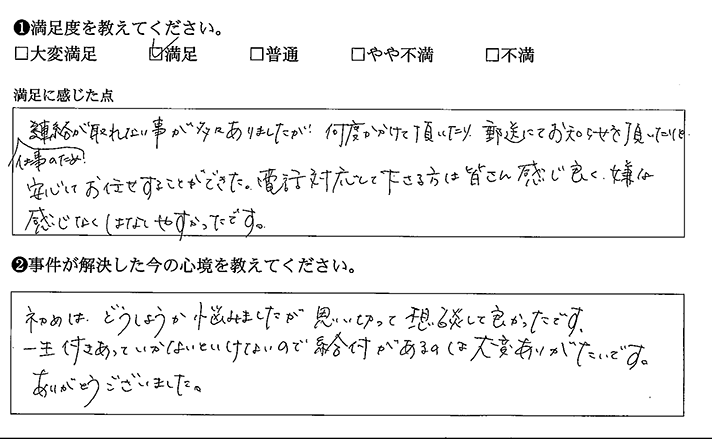 ❶満足度を教えてください。
□大変満足 ☑満足 □普通 □やや不満 □不満
満足に感じた点
連絡が取れない事が多々ありましたが、何度かかけて頂いたり、郵送にてお知らせを頂いたりと
仕事のため、
安心してお任せすることができた。電話対応して下さる方は皆さん感じ良く、嫌な
感じなくはなしやすかったです。
❷事件が解決した今の心境を教えてください。
初めは、どうしようか悩みましたが思い切って相談して良かったです。
一生付きあっていかないといけないので給付があるのは大変ありがたいです。
ありがとうございました。